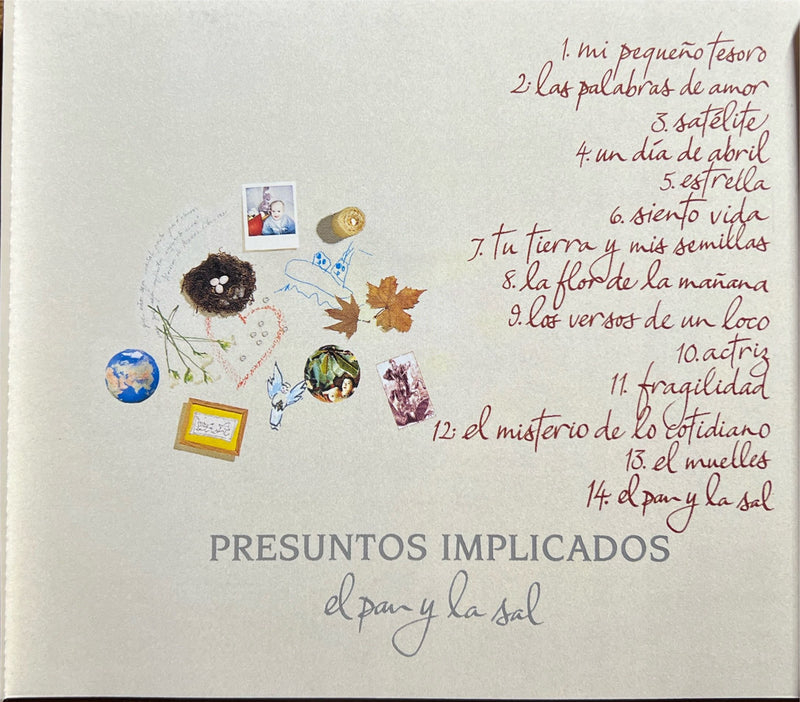 1. mi pequeño tesoro
2. las palabras de amor
3. satélite
4. un día de abril
5. estrella
6. siento vida
7. tu tierra y mis semillas
8. la flor de la mañana
9. los versos de un loco
10. actriz
11. fragilidad
12. el misterio de lo cotidiano
13. el muelles
14. el pan y la sal
PRESUNTOS IMPLICADOS
el pan y la sal